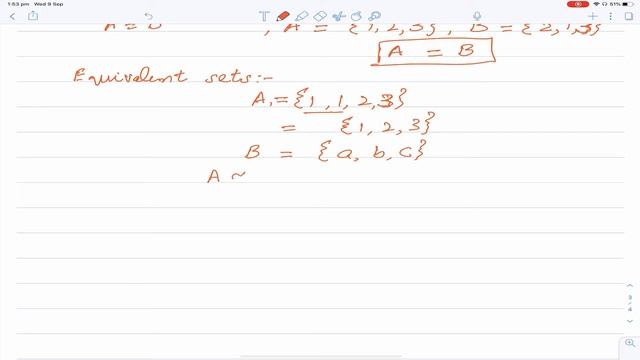 1:53 pm Wed 9 Sep 51%
, A = {1, 2, 3}, B = {2, 1, 3}
A = B
Equivalent sets:-
A, = {1, 1, 2, 3}
= {1, 2, 3}
B = {a, b, c}
A ~
3
/
4